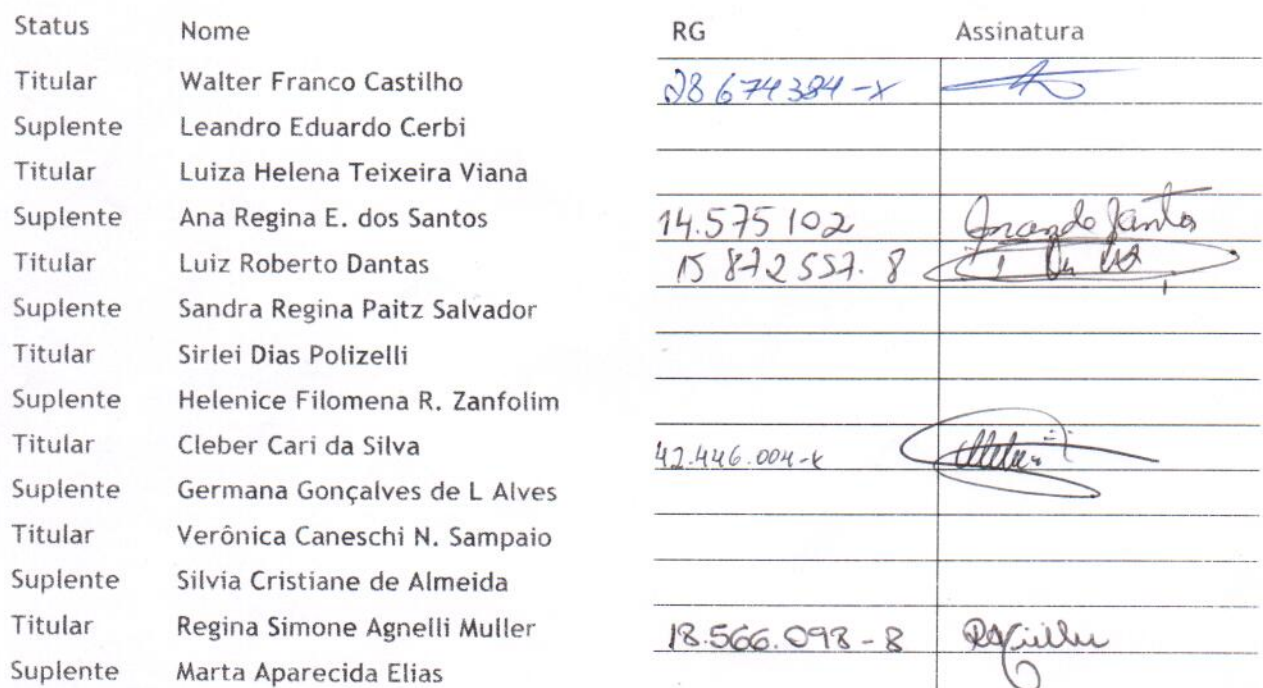 Status Nome RG Assinatura
Titular Walter Franco Castilho 28674384-x
Suplente Leandro Eduardo Cerbi
Titular Luiza Helena Teixeira Viana
Suplente Ana Regina E. dos Santos 14.575102
Titular Luiz Roberto Dantas 15 872 557. 8
Suplente Sandra Regina Paitz Salvador
Titular Sirlei Dias Polizelli
Suplente Helenice Filomena R. Zanfolim
Titular Cleber Cari da Silva 42.446.004-x
Suplente Germana Gonçalves de L Alves
Titular Verônica Caneschi N. Sampaio
Suplente Silvia Cristiane de Almeida
Titular Regina Simone Agnelli Muller 18.566.098-8
Suplente Marta Aparecida Elias